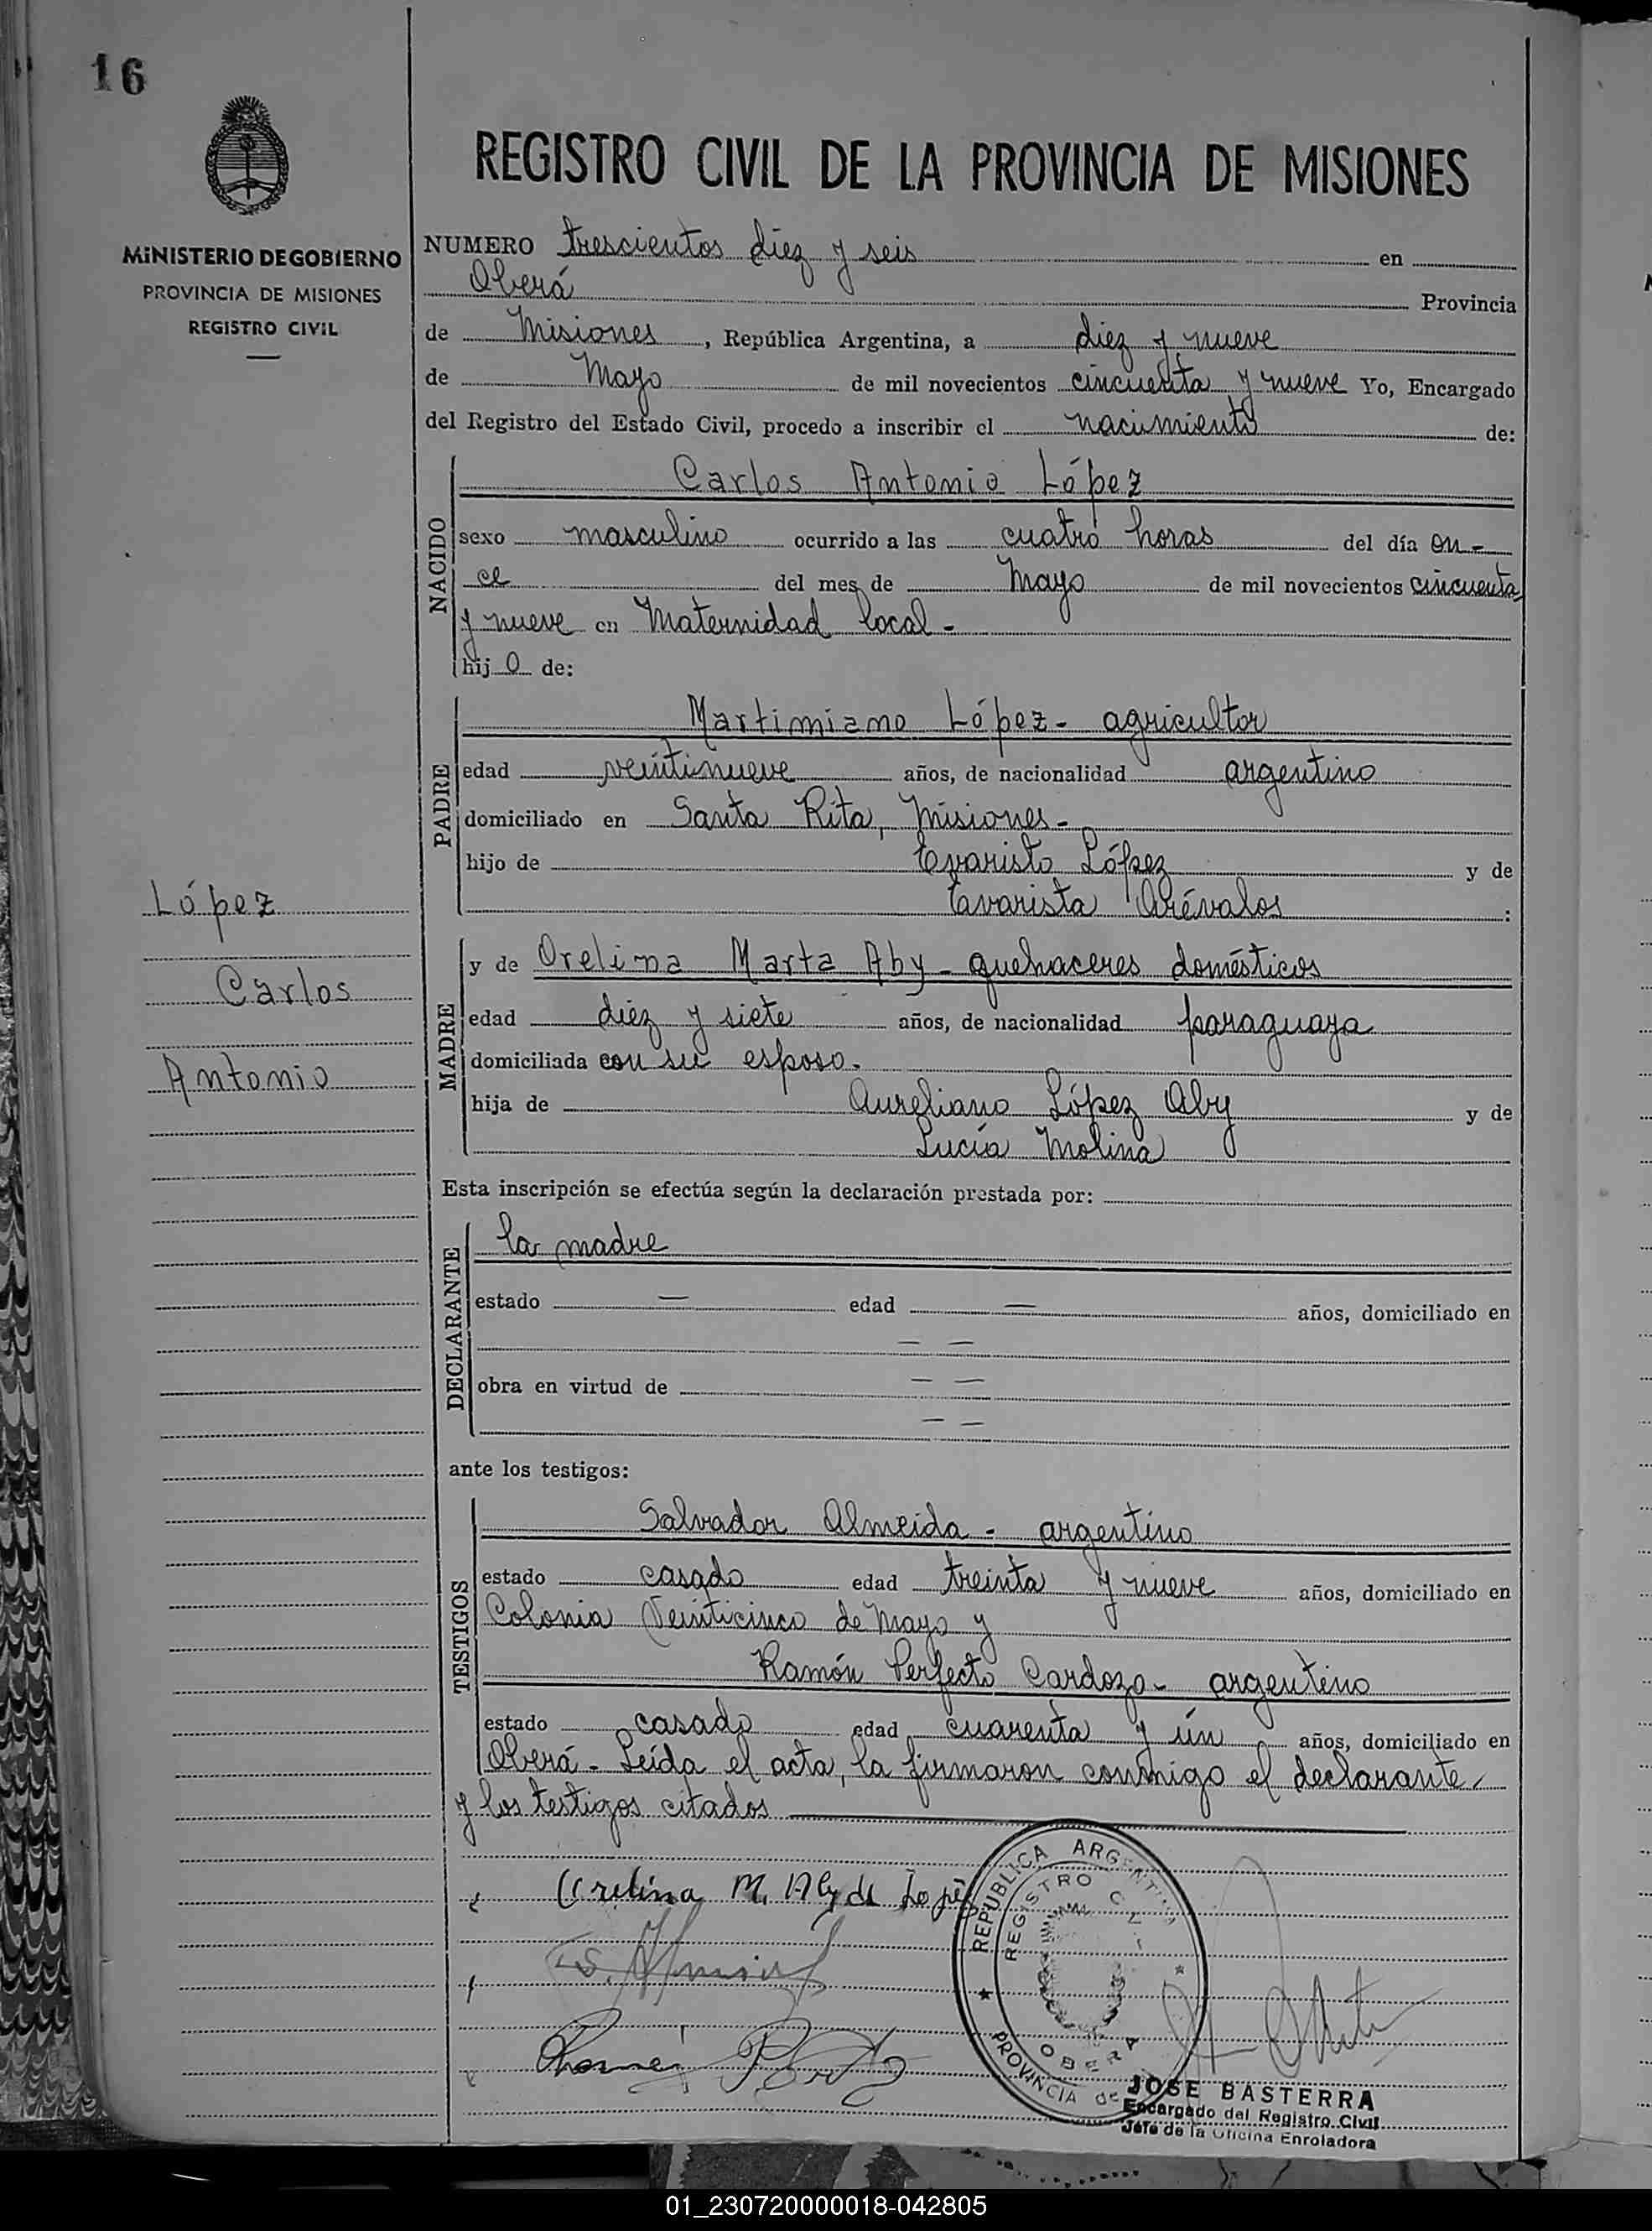 16
REGISTRO CIVIL DE LA PROVINCIA DE MISIONES
MINISTERIO DE GOBIERNO
PROVINCIA DE MISIONES
REGISTRO CIVIL
NUMERO trescientos diez y seis en
Oberá Provincia
de Misiones, República Argentina, a diez y nueve
de Mayo de mil novecientos cincuenta y nueve Yo, Encargado
del Registro del Estado Civil, procedo a inscribir el nacimiento de:
NACIDO
Carlos Antonio López
sexo masculino ocurrido a las cuatro horas del día on-
ce del mes de Mayo de mil novecientos cincuenta
y nueve en Maternidad local -
hijo de:
PADRE
Martimiano López - agricultor
edad veintinueve años, de nacionalidad argentino
domiciliado en Santa Rita, Misiones -
hijo de Evaristo López y de
Evarista Arévalos :
López
Carlos
Antonio
MADRE
y de Orelina Marta Aby - quehaceres domésticos
edad diez y siete años, de nacionalidad paraguaya
domiciliada con su esposo.
hija de Aureliano López Aby y de
Lucía Molina
Esta inscripción se efectúa según la declaración prestada por:
DECLARANTE
la madre
estado — edad — años, domiciliado en
— —
obra en virtud de — —
— —
ante los testigos:
TESTIGOS
Salvador Almeida - argentino
estado casado edad treinta y nueve años, domiciliado en
Colonia Veinticinco de Mayo y
Ramón Perfecto Cardozo - argentino
estado casado edad cuarenta y ún años, domiciliado en
Oberá - Leída el acta, la firmaron conmigo el declarante
y los testigos citados
Orelina M. Aby de Lopez
REPUBLICA ARGENTINA
REGISTRO CIVIL
OBERA
PROVINCIA de
JOSE BASTERRA
Encargado del Registro Civil
Jefe de la Oficina Enroladora
01_230720000018-042805